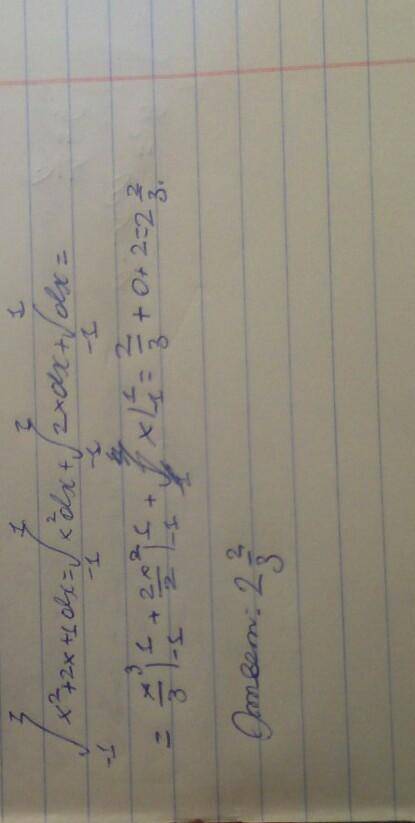 ∫₋₁¹ x²+2x+1 dx = ∫₋₁¹ x²dx + ∫₋₁¹ 2xdx + ∫₋₁¹ dx =
= x³/3 |₋₁¹ + 2x²/2 |₋₁¹ + x |₋₁¹ = 2/3 + 0 + 2 = 2 2/3.
Ответ: 2 2/3